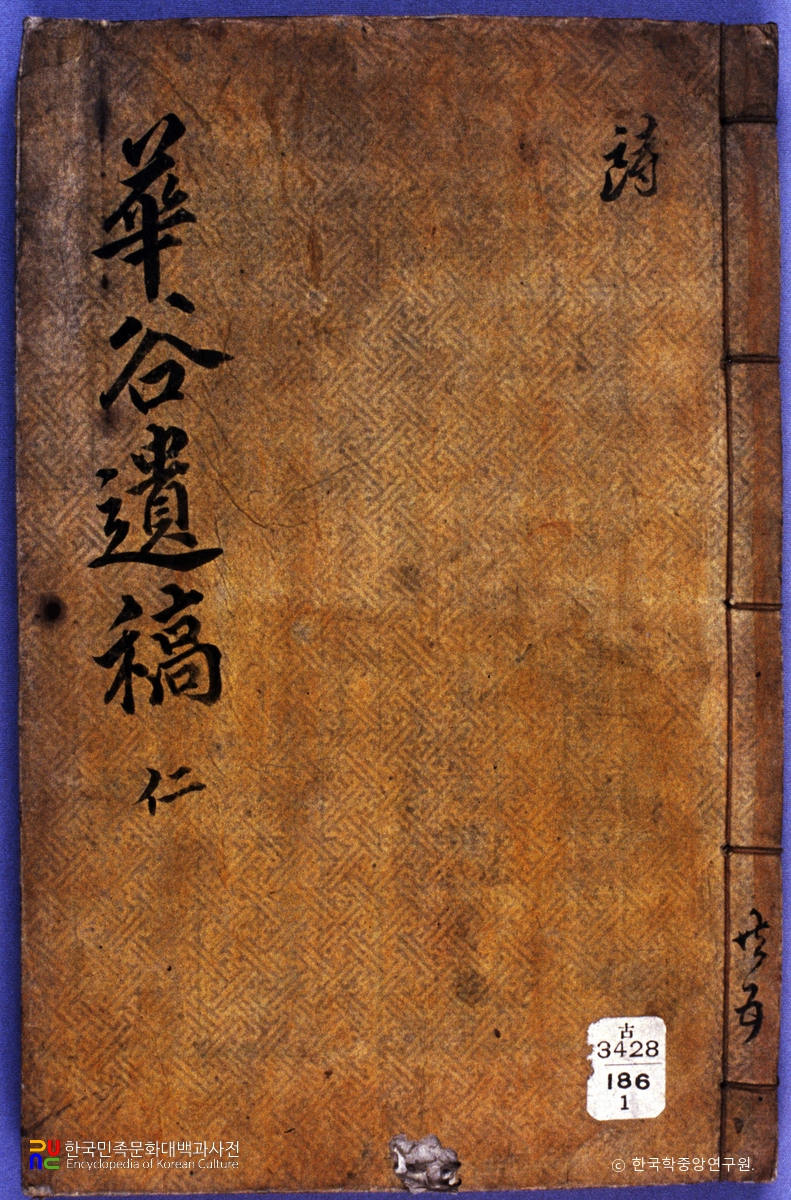 詩
華谷遺稿 仁
共五
古
3428
186
1
한국민족문화대백과사전
Encyclopedia of Korean Culture
ⓒ 한국학중앙연구원.